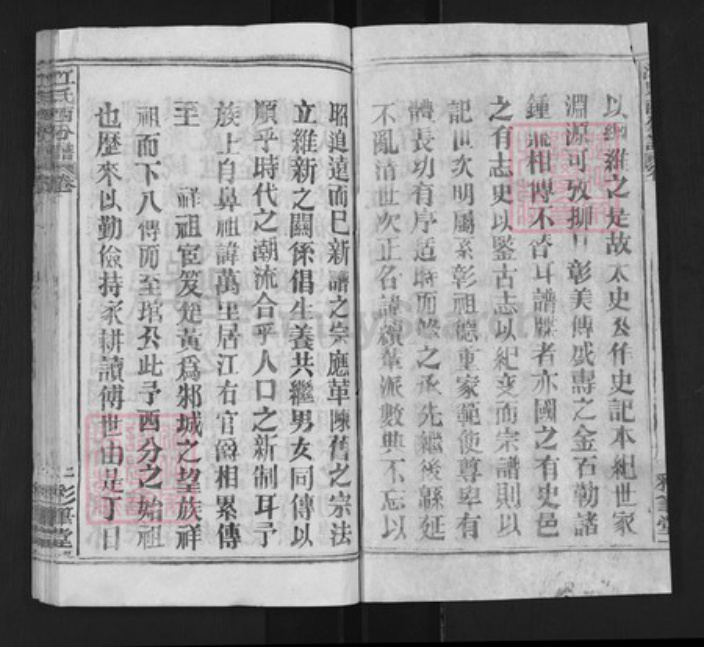 以綱維之是故太史公作史記本紀世家
淵源可攷抑且彰美傳盛壽之金石勒諸
鍾鼎相傳不沓耳譜牒者亦國之有史邑
之有志史以鑒古志以紀変而宗譜則以
記世次明屬系彰祖德重家範使尊卑有
體長幼有序適時而修之承先繼後緜延
不亂清世次正名諱續葦派數典不忘以
昭追遠而已新譜之宗應革陳舊之宗法
立維新之關係倡生養共繼男女同傳以
順乎時代之潮流合乎人口之新制耳予
族上自鼻祖諱萬里居江右官爵相累傳
至 祥祖宦笈楚黃爲邾城之望族祥
祖而下八傳而至琯公此予酉分之始祖
也歷來以勤儉持家耕讀傳世由是丁口
江氏酉分譜 卷
二 彩筆堂